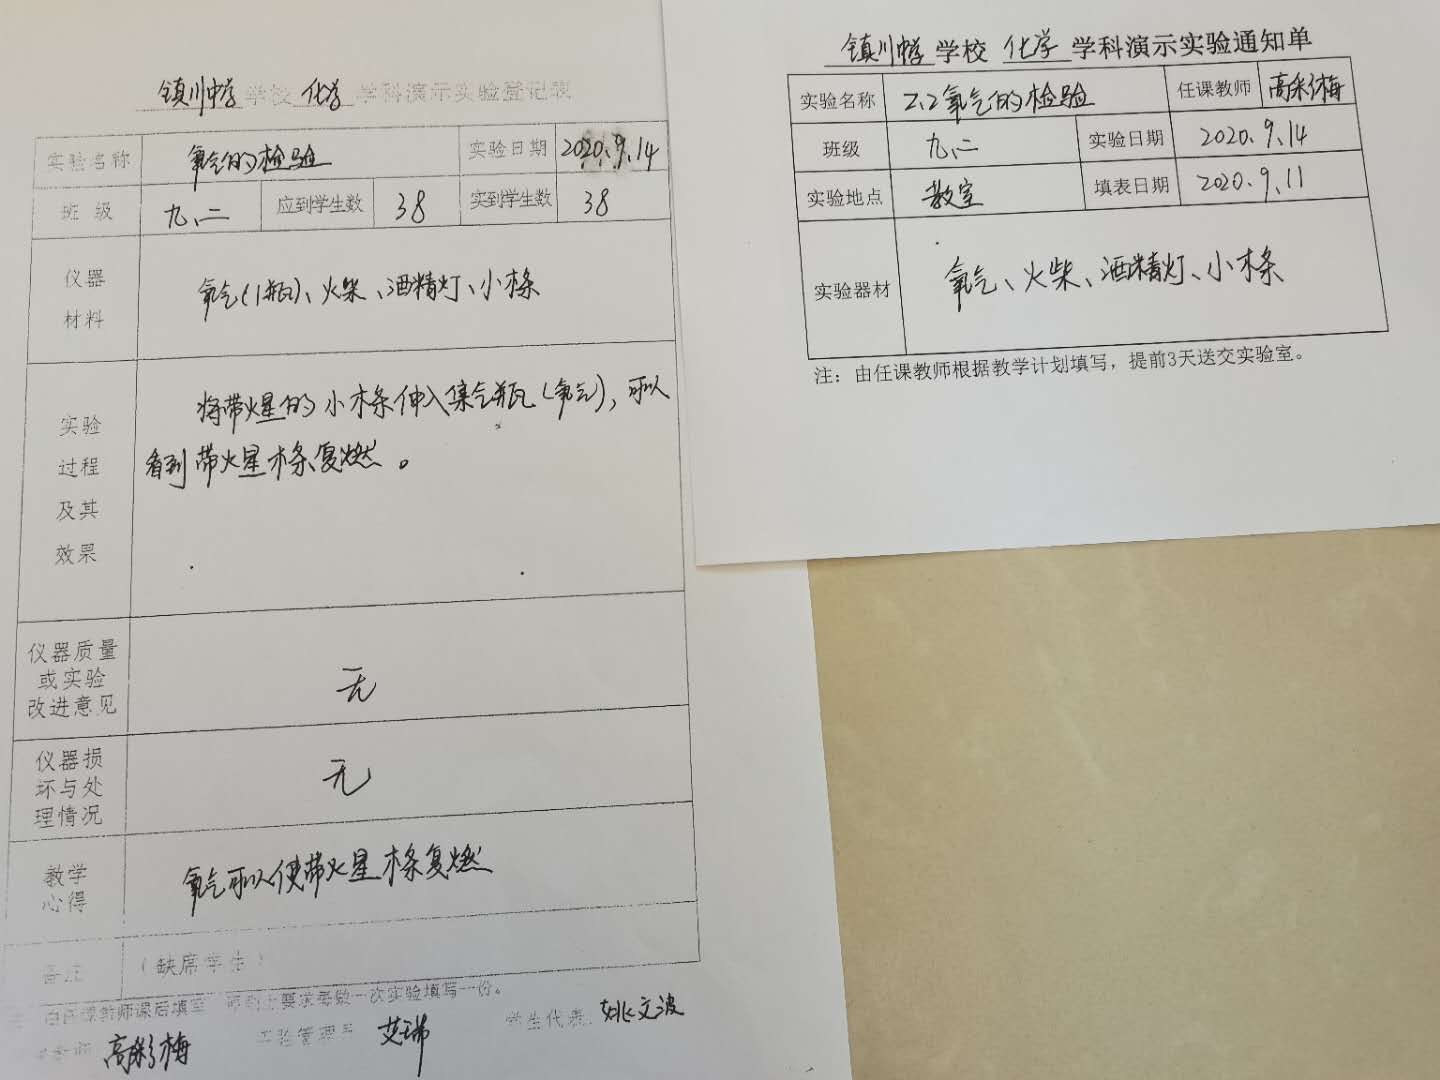 镇川中学 学校 化学 学科演示实验登记表
实验名称 氧气的检验 实验日期 2020.9.14
班 级 九、二 应到学生数 38 实到学生数 38
仪器
材料
氧气(1瓶)、火柴、酒精灯、小木条
实验
过程
及其
效果
将带火星的小木条伸入集气瓶(氧气),可以
看到带火星木条复燃。
仪器质量
或实验
改进意见
无
仪器损
坏与处
理情况
无
教学
心得
氧气可以使带火星木条复燃
备注 (缺席学生)
由任课教师课后填写 要求每做一次实验填写一份。
高彩梅 实验管理员 艾瑞 学生代表: 姚文波
镇川中学 学校 化学 学科演示实验通知单
实验名称 2.2氧气的检验 任课教师 高彩梅
班级 九、二 实验日期 2020.9.14
实验地点 教室 填表日期 2020.9.11
实验器材 氧气、火柴、酒精灯、小木条
注:由任课教师根据教学计划填写,提前3天送交实验室。